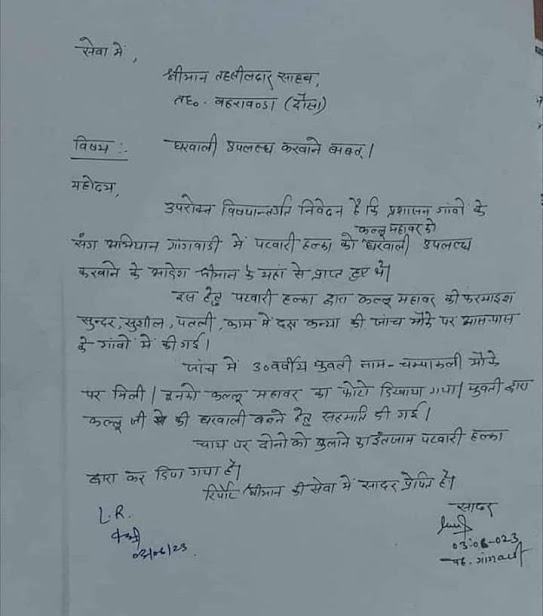 सेवा में,
श्रीमान तहसीलदार साहब,
तह० बहरावण्डा (दौसा)
विषय :- घरवाली उपलब्ध करवाने बाबत्।
महोदय,
उपरोक्त विषयान्तर्गत निवेदन है कि प्रशासन गांवों के
संग अभियान गांगवाडी में पटवारी हल्का को कल्लू महावर को घरवाली उपलब्ध
करवाने के आदेश श्रीमान के यहां से प्राप्त हुए थे।
इस हेतु पटवारी हल्का द्वारा कल्लू महावर की फरमाइश
सुन्दर, सुशील, पतली, काम में दक्ष कन्या की जांच मौके पर आसपास
के गांवों में की गई।
जांच में 30 वर्षीय युवती नाम - चम्पाकली मौके
पर मिली। इनको कल्लू महावर का फोटो दिखाया गया। युवती द्वारा
कल्लू जी की घरवाली बनने हेतु सहमति दी गई।
चाय पर दोनो को बुलाने का इंतजाम पटवारी हल्का
द्वारा कर दिया गया है।
रिपोर्ट श्रीमान की सेवा में सादर प्रेषित है।
सादर
L.R.
03/06/23
03:06-023